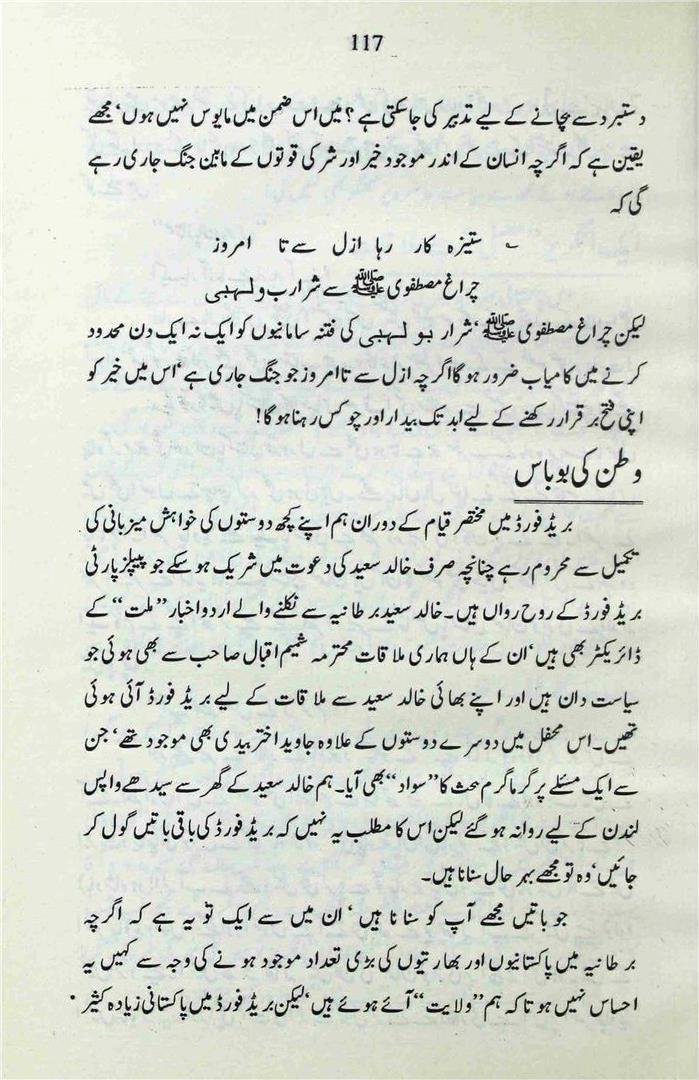 117
دستبرد سے بچانے کے لیے تدبیر کی جا سکتی ہے ؟ میں اس ضمن میں مایوس نہیں ہوں‘ مجھے
یقین ہے کہ اگر چہ انسان کے اندر موجود خیر اور شر کی قوتوں کے مابین جنگ جاری رہے
گی کہ
؎ ستیزہ کار رہا ازل سے تا امروز
چراغ مصطفوی ﷺ سے شرار بولہبی
لیکن چراغ مصطفوی ﷺ‘ شرار بولہبی کی فتنہ سامانیوں کو ایک نہ ایک دن محدود
کرنے میں کامیاب ضرور ہو گا اگر چہ ازل سے تا امروز جو جنگ جاری ہے‘ اس میں خیر کو
اپنی فتح برقرار رکھنے کے لیے ابد تک بیدار اور چوکس رہنا ہو گا!
وطن کی بو باس
بریڈ فورڈ میں مختصر قیام کے دوران ہم اپنے کچھ دوستوں کی خواہش میزبانی کی
تکمیل سے محروم رہے چنانچہ صرف خالد سعید کی دعوت میں شریک ہو سکے جو پیپلز پارٹی
بریڈ فورڈ کے روح رواں ہیں۔ خالد سعید برطانیہ سے نکلنے والے اردو اخبار ’’ملت‘‘ کے
ڈائریکٹر بھی ہیں‘ ان کے ہاں ہماری ملاقات محترمہ شمیم اقبال صاحب سے بھی ہوئی جو
سیاست دان ہیں اور اپنے بھائی خالد سعید سے ملاقات کے لیے بریڈ فورڈ آئی ہوئی
تھیں۔ اس محفل میں دوسرے دوستوں کے علاوہ جاوید اختر بیدی بھی موجود تھے‘ جن
سے ایک مسئلے پر گرما گرم بحث کا ’’سواد‘‘ بھی آیا۔ ہم خالد سعید کے گھر سے سیدھے واپس
لندن کے لیے روانہ ہو گئے لیکن اس کا مطلب یہ نہیں کہ بریڈ فورڈ کی باقی باتیں گول کر
جائیں‘ وہ تو مجھے بہر حال سنانا ہیں۔
جو باتیں مجھے آپ کو سنانا ہیں‘ ان میں سے ایک تو یہ ہے کہ اگرچہ
برطانیہ میں پاکستانیوں اور بھارتیوں کی بڑی تعداد موجود ہونے کی وجہ سے کہیں یہ
احساس نہیں ہوتا کہ ہم ’’ولایت‘‘ آئے ہوئے ہیں‘ لیکن بریڈ فورڈ میں پاکستانی زیادہ کثیر